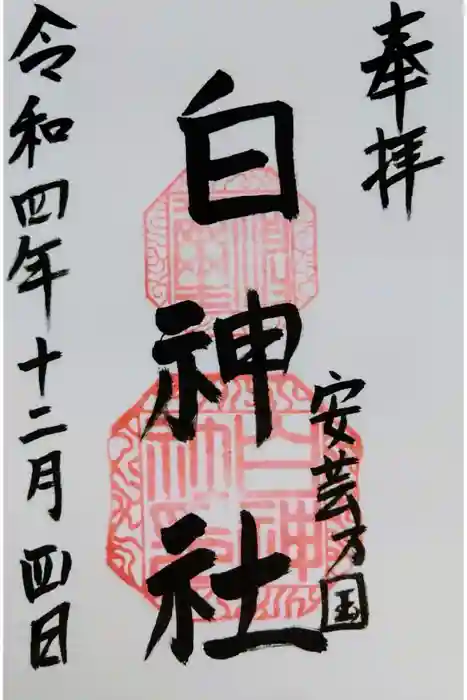 奉拝
安芸乃国
白神社
令和四年十二月四日